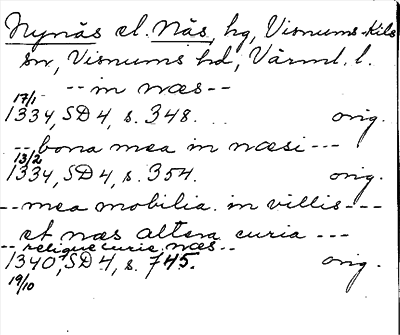 Nynäs el. Näs, hg, Visnums-Kils
sn, Visnums hd, Värml. l.
-- in næs --
17/1
1334, SD 4, s. 348. orig.
-- bona mea in næsi ---
13/2
1334, SD 4, s. 354. orig.
-- mea mobilia in villis ---
et næs altera curia ---
-- relique curie næs --
1340, SD 4, s. 745. orig.
19/10